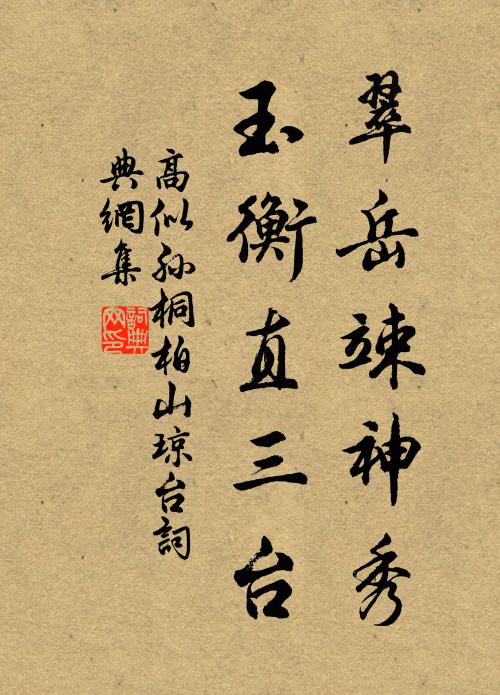 翠岳竦神秀
玉衡直三台
高似孙桐柏山琼台詞
典網集
詞典網印